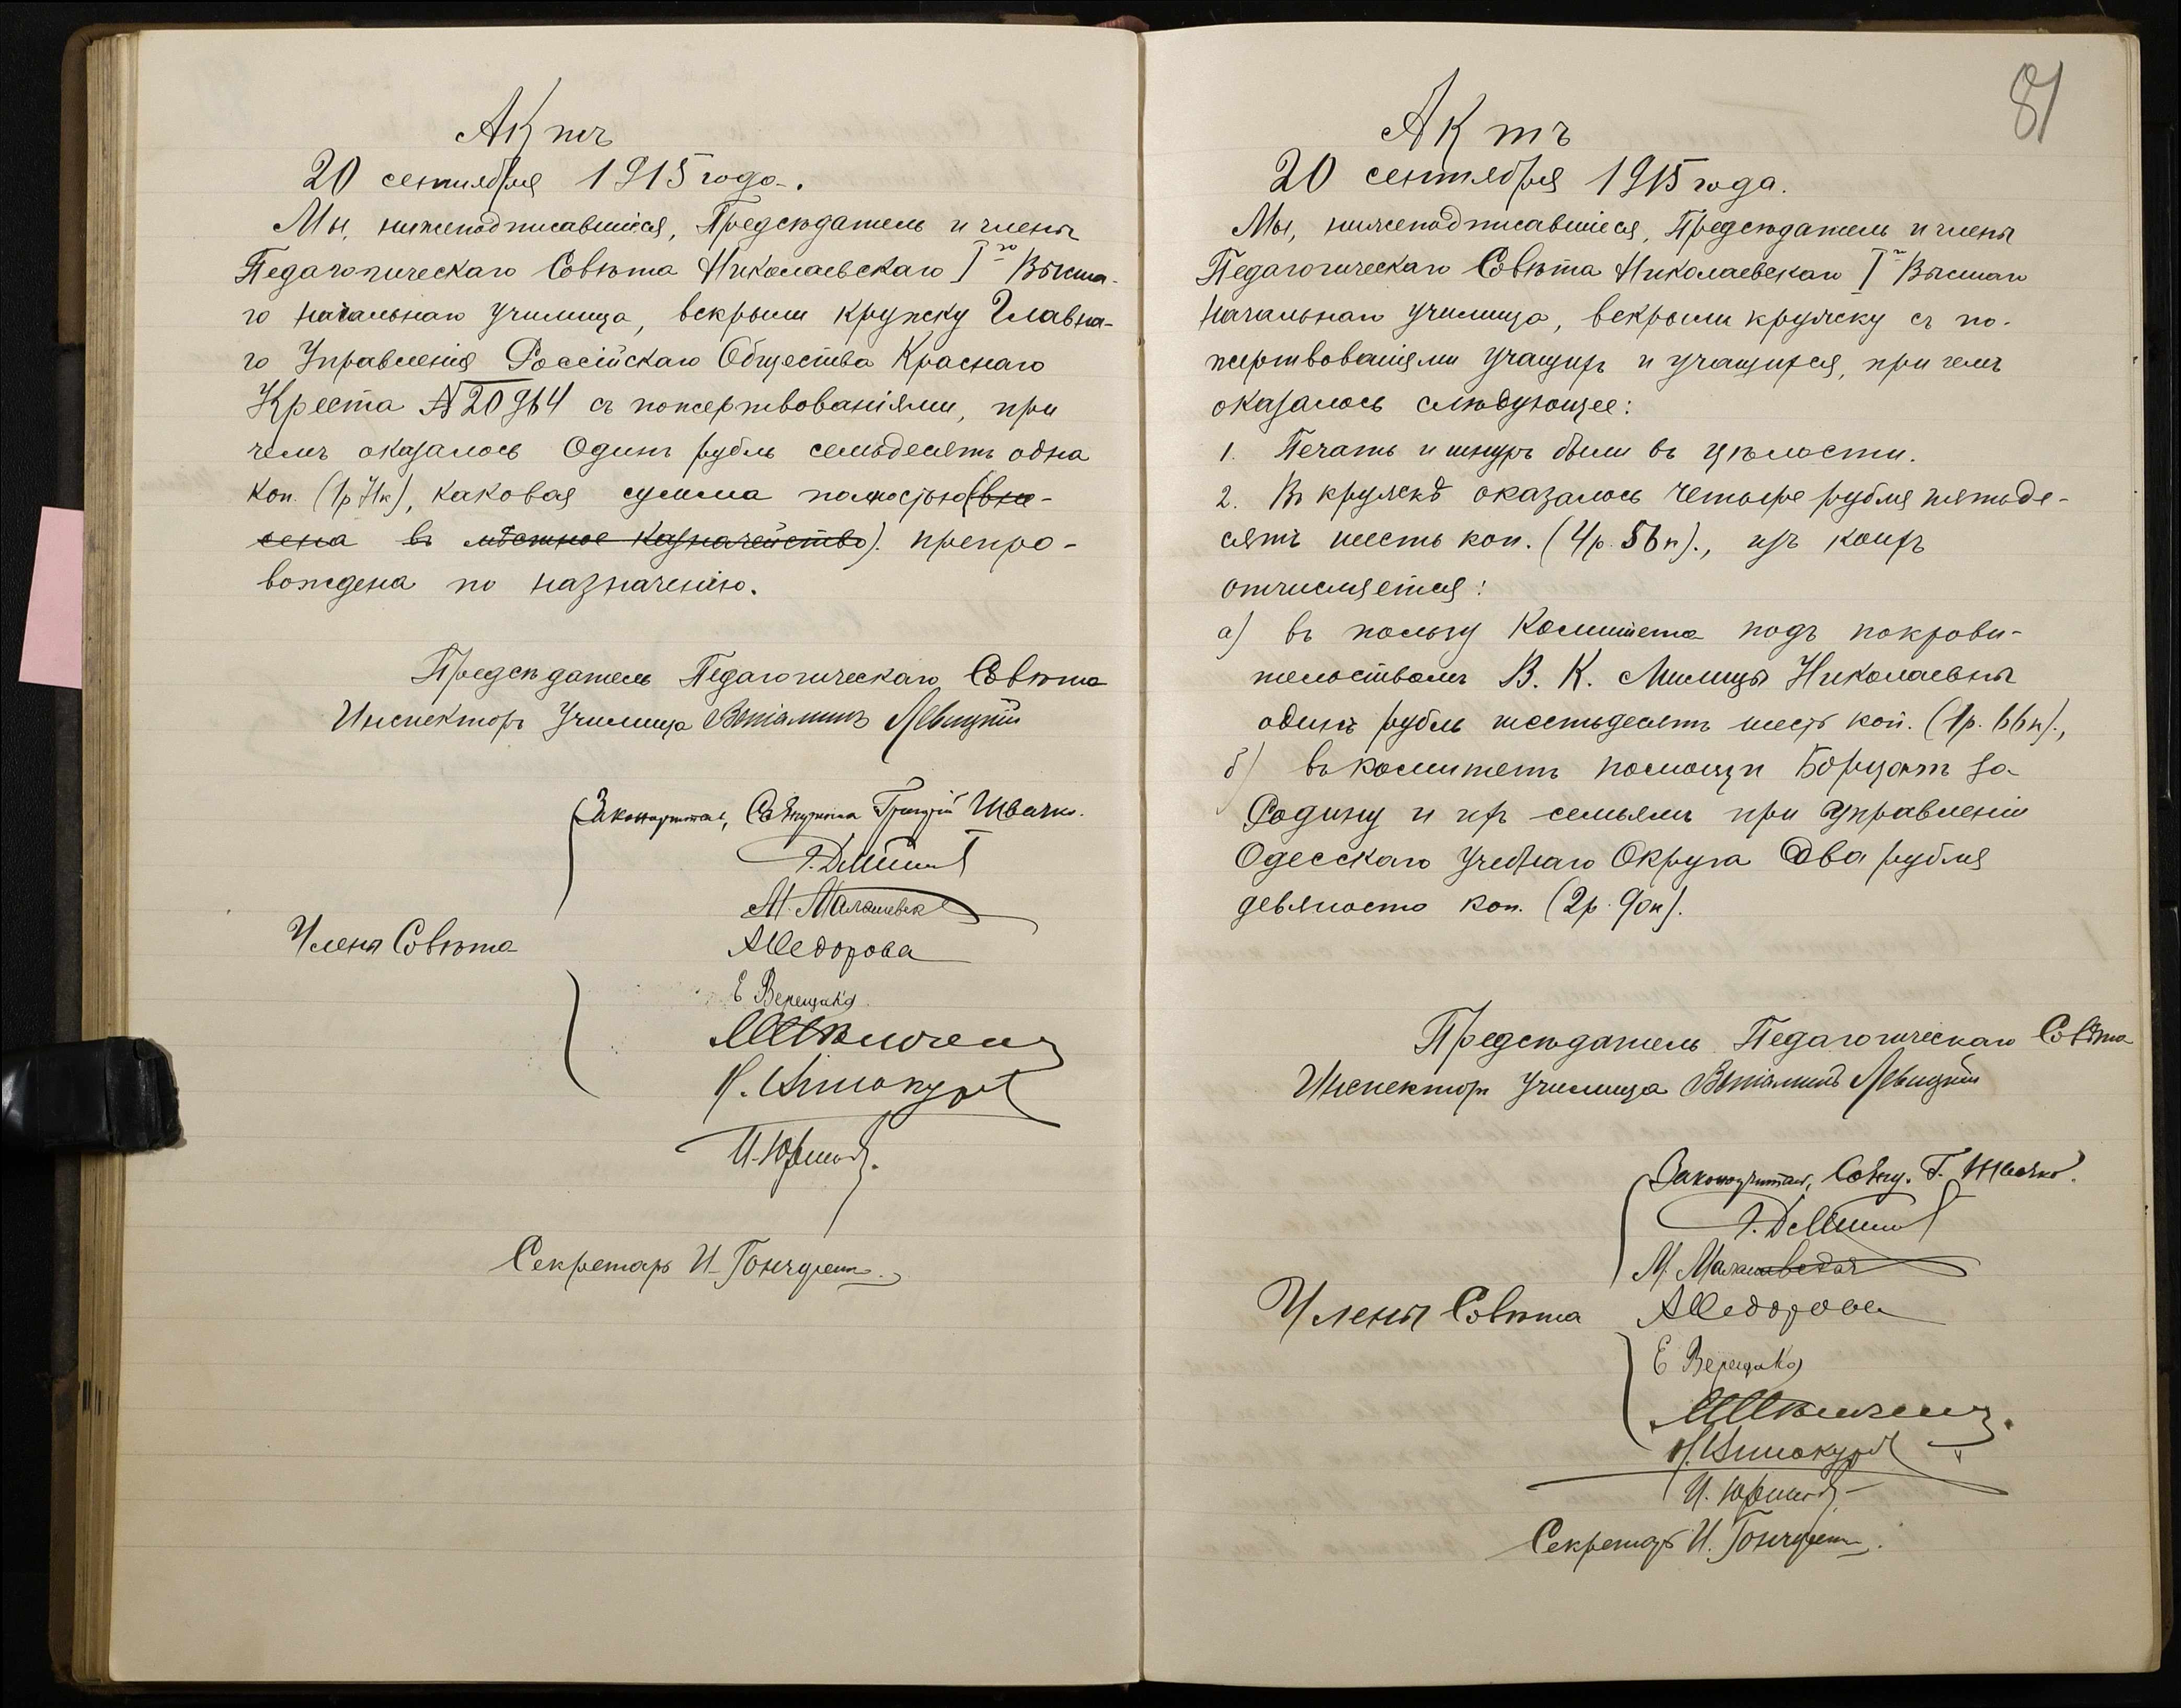 Актъ
20 сентября 1915 года.
Мы, нижеподписавшіеся, Предсѣдатель и члены
Педагогическаго Совѣта Николаевскаго Iго Высша-
го начальнаго училища, вскрыли кружку Главна-
го Управленія Россійскаго Общества Краснаго
Креста № 20964 съ пожертвованіями, при
чемъ оказалось Одинъ рубль семьдесятъ одна
коп. (1р 71к), каковая сумма полностью (вне-
сена въ мѣстное Казначейство). препро-
вождена по назначенію.
Предсѣдатель Педагогическаго Совѣта
Инспекторъ Училища Веніаминъ Левицкій
Законоучитель, Священникъ Григорій Швачко.
М. Малашевск
Члены Совѣта
А Федорова
Е Верещака
Н. Винокуров
Секретарь И. Гончаренко.
81
Актъ
20 сентября 1915 года.
Мы, нижеподписавшіеся, Предсѣдатель и члены
Педагогическаго Совѣта Николаевскаго Iго Высшаго
Начальнаго училища, вскрыли кружку съ по-
жертвованіями учащихъ и учащихся, при чемъ
оказалось слѣдующее:
1. Печать и шнуръ были въ цѣлости.
2. Въ кружкѣ оказалось четыре рубля пятьде-
сятъ шесть коп. (4р. 56к)., изъ коихъ
отчисляется:
а) въ пользу Комитета подъ покрови-
тельствомъ В. К. Милицы Николаевны
одинъ рубль шестьдесятъ шесть коп. (1р. 66к).,
б) въ комитетъ помощи Борцамъ за
Родину и ихъ семьямъ при Управленіи
Одесскаго Учебнаго Округа Два рубля
девяносто коп. (2р. 90к).
Предсѣдатель Педагогическаго Совѣта
Инспекторъ Училища Веніаминъ Левицкій
Законоучитель, Свящ. Г. Швачко.
М. Малашевск
Члены Совѣта А Федорова
Е Верещака
Н. Винокуров
Секретарь И. Гончаренко.